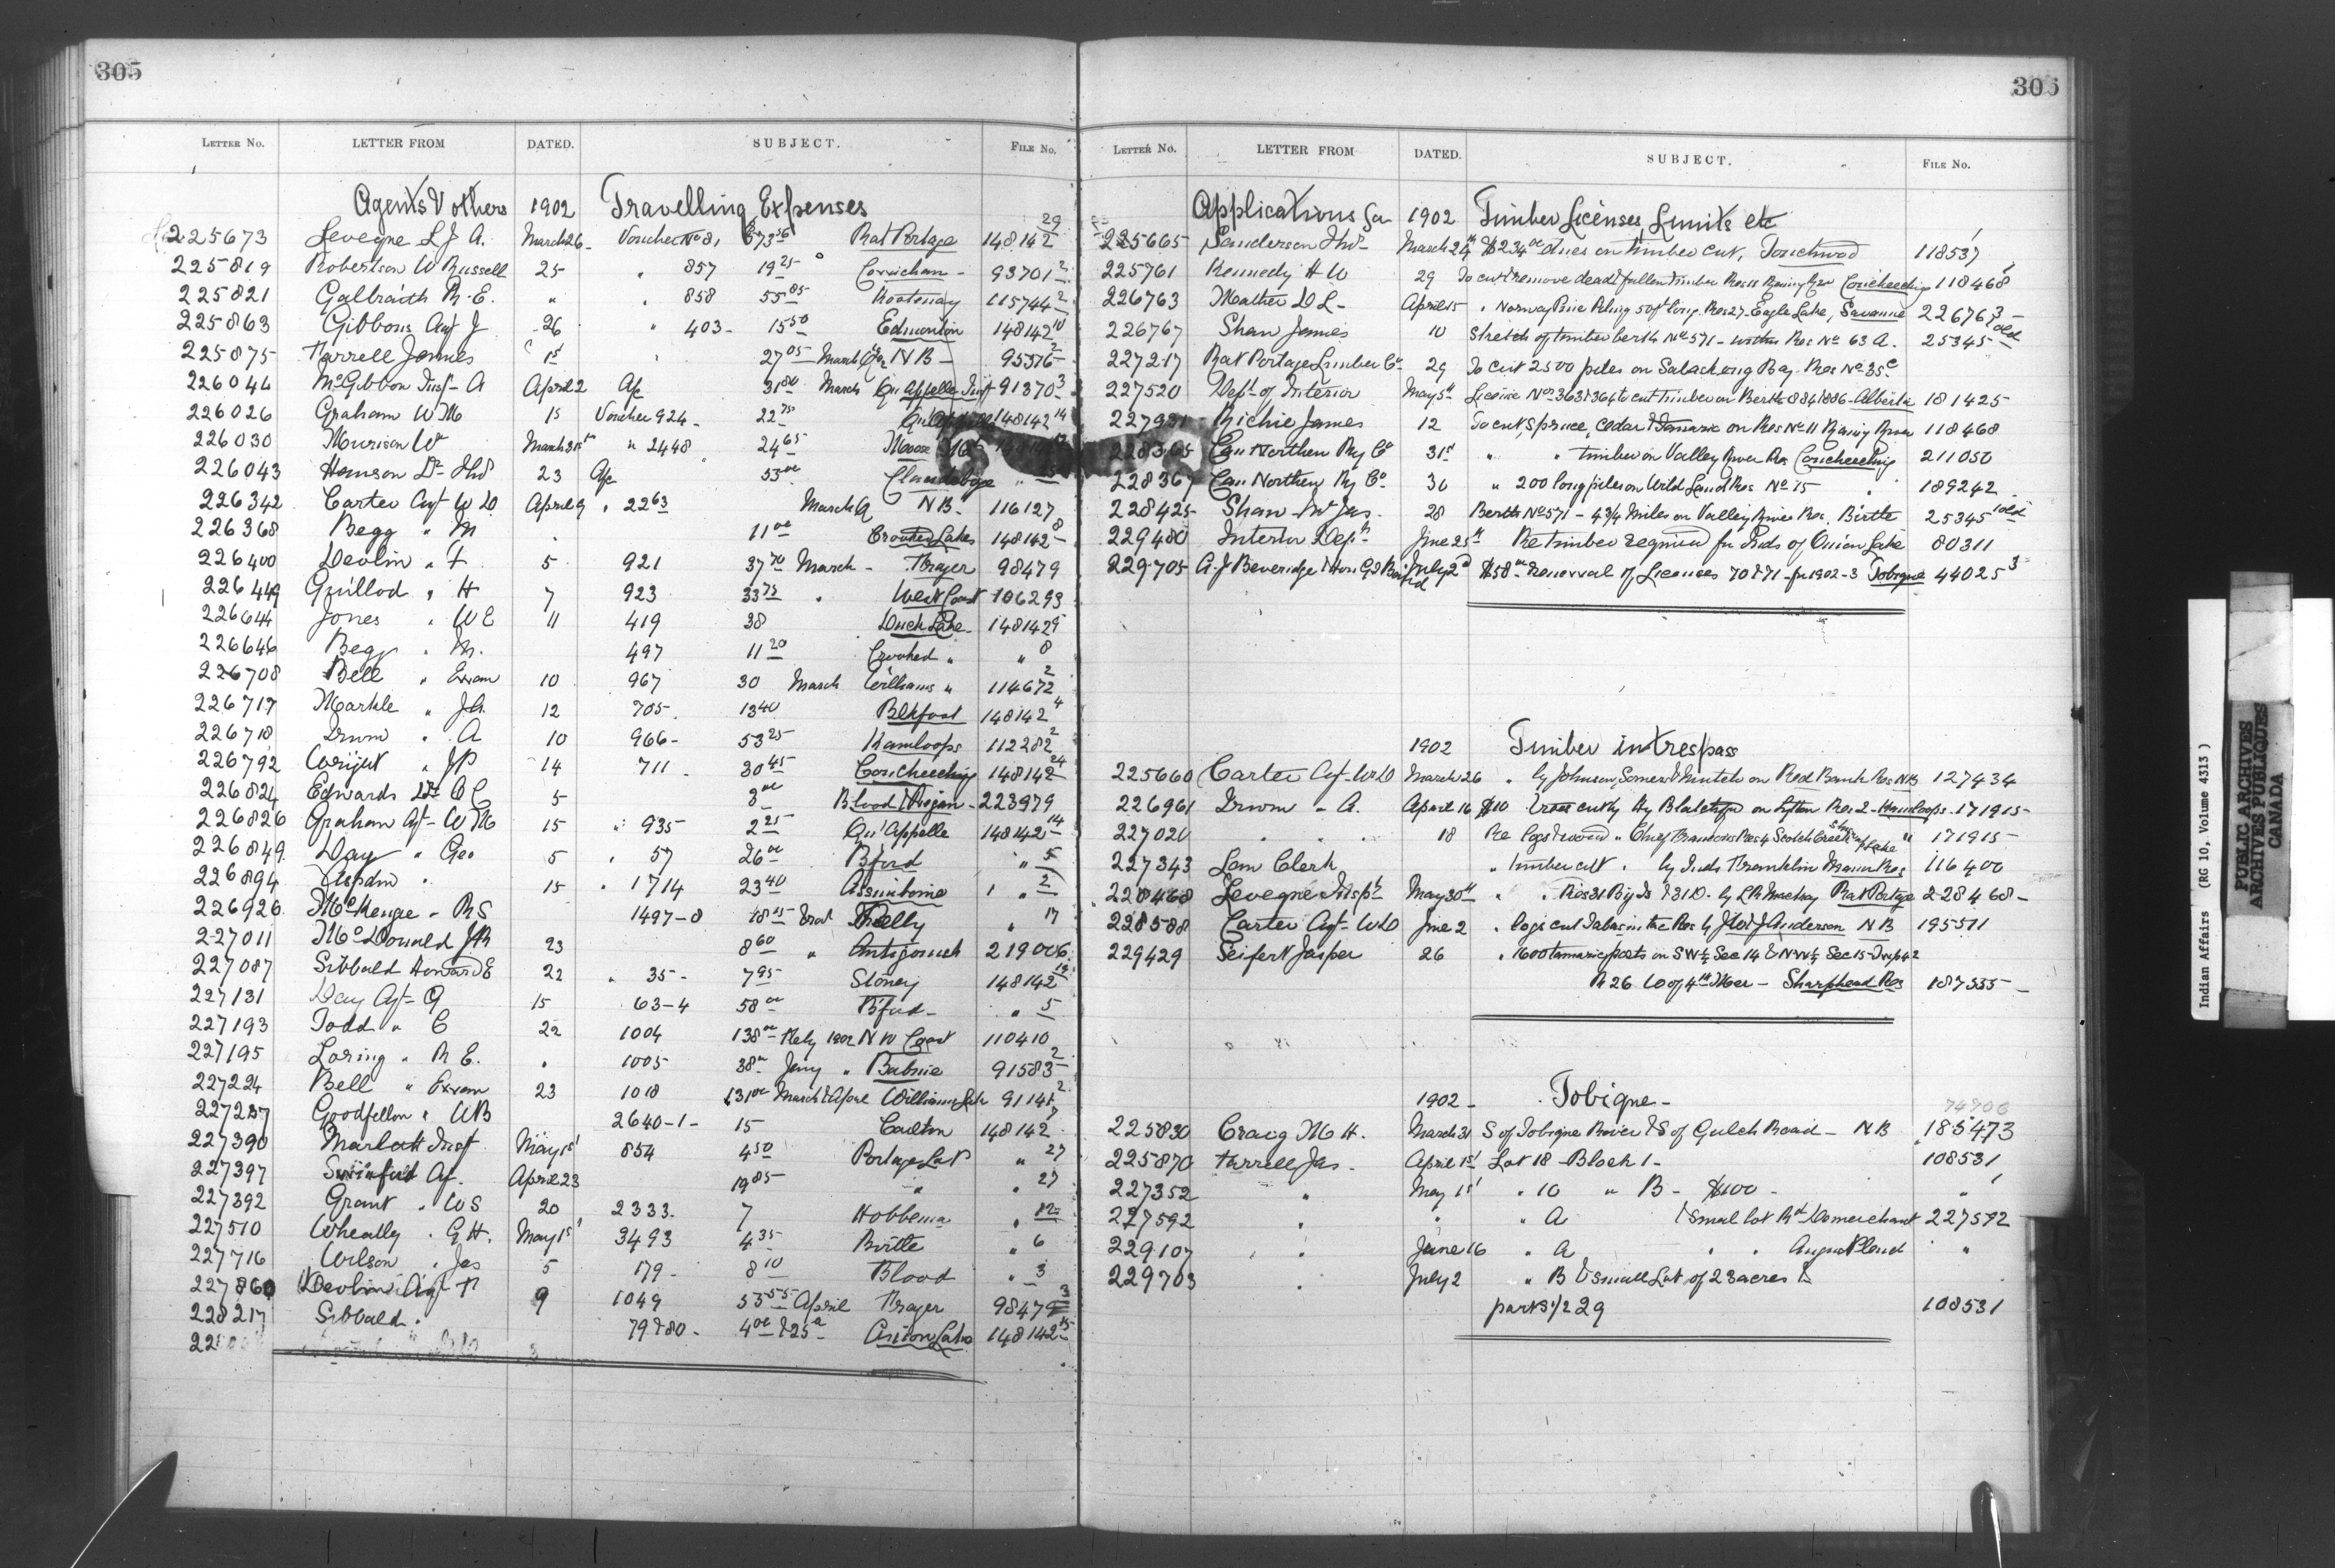 305
LETTER No. LETTER FROM DATED. SUBJECT. FILE No.
Agents & others 1902 Travelling Expenses
225673 Levegne L J A. March 26 Voucher No 81 Rat Portage 148142 29
225819 Robertson W Russell 25 " 857 19 25 Cowichan 93701 2
225821 Galbraith R. E. " " 858 55 85 Kootenay 115744 2
225863 Gibbons Agt J 26 " 403 15 50 Edmonton 148142 10
225875 Farrell James 1st 27 05 March Qr N B 95376 2
226044 McGibbon Insp A April 2 A/c 31 80 March Qu'Appelle Inspt 91370 3
226026 Graham W M 15 Voucher 924 22 75 Qu'Appelle 148142 14
226030 Murison W March 31st " 2448 24 65 Moose Mt
226043 Hanson Dr Thos 23 A/c 53 00 Clandeboye " 5
226342 Carter Agt W D April 9 " 22 63 March Qr N B. 116127
226368 Begg " M 11 00 Crooked Lakes 148142 8
226400 Devlin " F 5 921 37 70 March Frazer 98479
226449 Guillod " H 7 923 33 75 " West Coast 106293
226644 Jones " W E 11 419 38 Duck Lake 148142 9
226646 Begg " M. 497 11 20 Crooked " " 8
226708 Bell " Ewen 10 967 30 March Williams " 114672 2
226717 Markle " J A. 12 705 13 40 Blkfoot 148142 4
226718 Irwin " A 10 966 53 25 Kamloops 112282 2
226792 Wright " J P 14 711 30 45 Coucheeching 148142 24
226824 Edwards Dr O C 5 3 00 Blood & Peigan 223979
226826 Graham Agt W M 15 " 935 2 25 Qu'Appelle 148142 14
226849 Day " Geo 5 " 57 26 00 Bford " 5
226894 Aspdin " 15 " 1714 23 40 Assiniboine " 2
226926 McKenzie " R S 1497-8 18 25 Pelly " 17
227011 McDonald J R 23 8 60 " Antigonish 219006
227087 Sibbald Howard E 22 " 35 7 95 Stoney 148142 12
227131 Day Agt G 15 63-4 58 00 Bford " 5
227193 Todd " C 22 1004 138 00 Feby 1902 N W Coast 110410
227195 Loring " R E. " 1005 38 00 Jany " Babine 91583 2
227224 Bell " Ewen 23 1018 131 00 March & April Williams Lake 91141 2
227237 Goodfellow " W B 2640-1 15 Carlton 148142 7
227390 Marlatt Inspt May 1st 854 4 50 Portage La P " 27
227397 Swinford Agt. April 23 19 85 " " 27
227392 Grant " W S 20 2333 7 Hobbema " 12
227510 Wheatly " G H. May 1st 3493 4 35 Birtle " 6
227716 Wilson " Jas 5 179 8 10 Blood " 3
227860 Devlin Agt F 9 1049 53 55 April Frazer 98479 3
228217 Sibbald " 79 & 80 4 00 & 25 00 Onion Lake 148142 15
305
LETTER No. LETTER FROM DATED. SUBJECT. FILE No.
Applications for 1902 Timber Licenses, Limits etc
225665 Sanderson Thos March 24th $234 00 dues on timber cut, Touchwood 118537 1
225761 Kennedy H W 29 To cut & remove dead & fallen timber Res 11 Rainy River Coucheeching 118468
226763 Mather D L April 15 " Norway Pine Piling 50 ft long Res 27 Eagle Lake, Savanne 226763
226767 Shaw James 10 Stretch of timber berth No 571 within Res No 63 A. 25345 old
227217 Rat Portage Lumber Co 29 To cut 2500 piles on Sabaskong Bay Res No 35 C
227520 Dept of Interior May 5th License Nos 363 & 364 to cut timber on Berths 884 & 886 Alberta 181425
227931 Richie James 12 To cut, Spruce, Cedar & Tamarac on Res No 11 Rainy River 118468
228365 Can Northern Ry Co 31st " " timber on Valley River Res Coucheeching 211050
228367 Can Northern Ry Co 30 " 200 long piles on Wild Land Res No 15 " 189242
228425 Shaw Mr Jas. 28 Berth No 571 - 4 3/4 Miles on Valley River Res, Birtle 25345 old
229480 Interior Dept June 25th Re timber required for Inds of Onion Lake 80311
229705 A. J Beveridge & Hon G. T Baird July 2d $58 00 Renewal of Licenses 70 & 71 for 1902-3 Tobique 44025 3
1902 Timber in trespass
225660 Carter Agt W D March 26 " by Johnson, Somers & Mutch on Red Bank Res NB 127434
226961 Irwin " A. April 16 $10 cut by Hy on Lytton Res 2 Kamloops 171915
227020 " " " 18 Re logs & wood " Chief Res 4 Scotch Creek " 171915
227343 Sam Clerk " timber cut " by Inds Franklin Manor Res 116400
228468 Levegne Inspt May 30th " " Res 31 Big Is & 31 D. by L R Mackay Rat Portage 228468
228588 Carter Agt W D June 2 " logs cut Tabusintac Res by J W & J Anderson N B 195511
229429 Seifert Jasper 26 " 1600 tamarac posts on S W 1/4 Sec 14 & N W 1/4 Sec 15 Twp 42
R 26 W of 4th Mer - Sharphead Res 187355
1902 Tobique 74906
225830 Craig M H. March 31 S of Tobique River & S of Gulch Road - N B 185473
225870 Farrell Jas. April 1st Lot 18 Block 1 108531
227352 " May 1st " 10 " B - $100 " 1
227592 " " " A & Small lot Rd 227592
229107 " June 16 " A " " "
229703 " July 2 " B & small Lot of 23 acres &
parts 1/2 29 108531
Indian Affairs (RG 10, Volume 4313)
PUBLIC ARCHIVES
ARCHIVES PUBLIQUES
CANADA